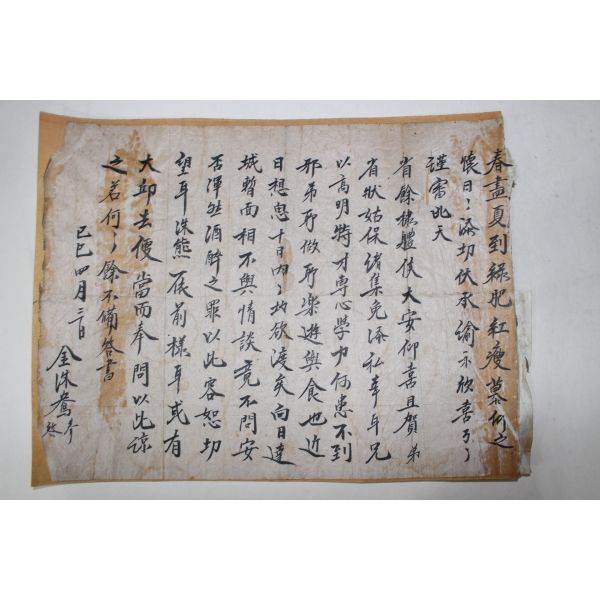 春盡夏到綠肥紅瘦慕仰之
懷日〻添切伏承諭示欣喜万〻
謹審此天
省餘棣體候大安仰喜且賀弟
省狀姑保緒集免添私幸耳兄
以高明特才專心學力何患不到
邪弟所做所樂遊與食也近
日想悤十日內〻欲渡矣向日達
城暫面相不與情談竟不問安
否渾然酒醉之罪以此容恕切
望耳洙熊侯前樣耳或有
大邱去便當而奉問以此諒
之若何〻餘不備答書
己巳四月三日
金洙